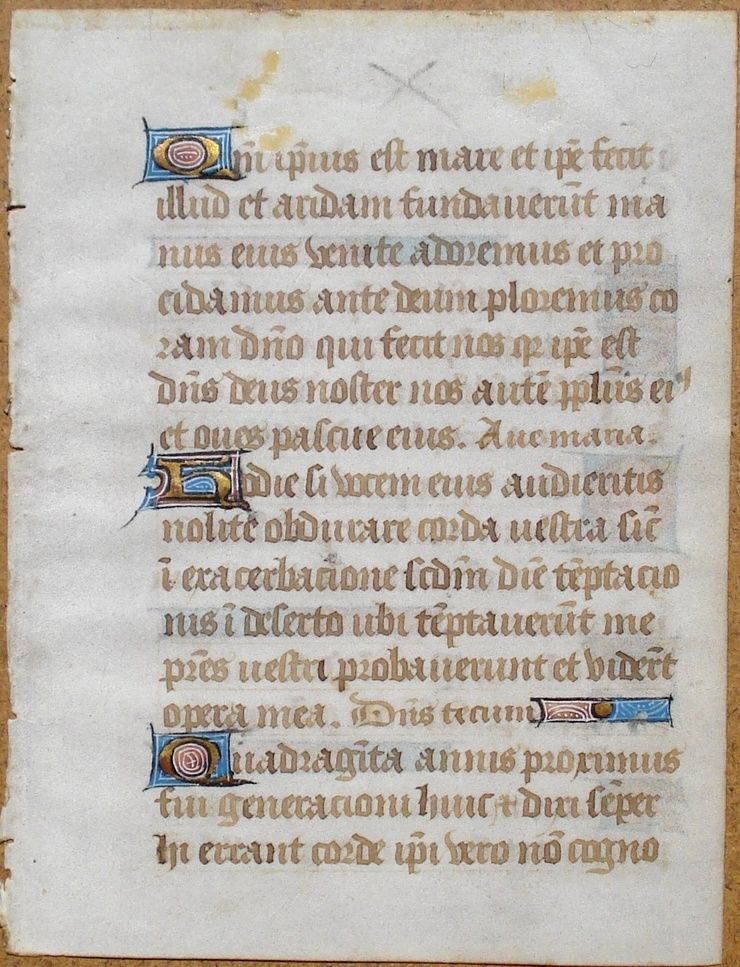 Qm̄ ip̄ius est mare et ip̄e fecit
illud et aridam fundauerūt ma
nus eius venite adoremus et pro
cidamus ante deum ploremus co
ram dn̄o qui fecit nos qr ip̄e est
dn̄s deus noster nos autē pplūs ei9
et oues pascue eius. Aue maria.
Hodie si vocem eius audieritis
nolite obdurare corda uestra sic̄
ī exacerbacione scdm̄ diē tēptacio
nis ī deserto ubi tēptauerūt me
pr̄es uestri probauerunt et viderūt
opera mea. Dn̄s tecum
Quadragīta annis proximus
fui generacioni huic ⁊ dixi sēper
hi errant corde ip̄i vero nō cogno